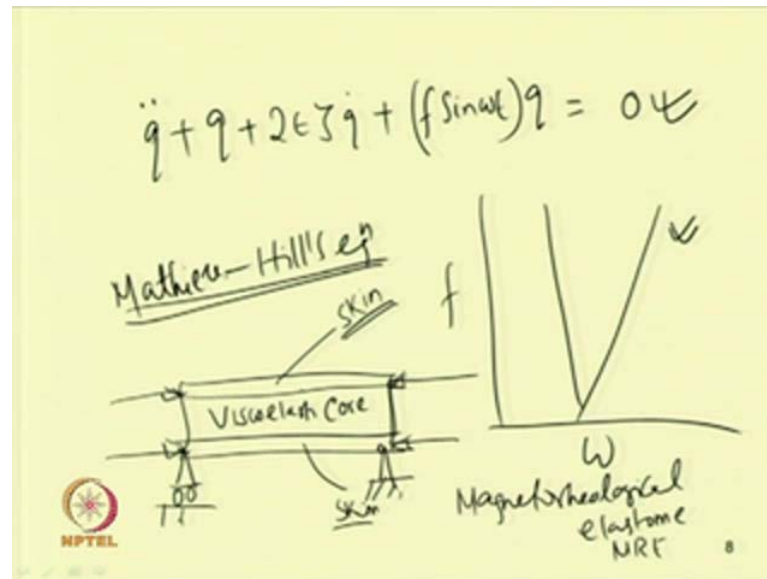 q̈ + q + 2ϵζq̇ + (f sinωt)q = 0
Mathieu-Hill's eqn
skin
f
Viscoelastic Core
ω
skin
Magnetorheological
elastome
MRE
NPTEL
8